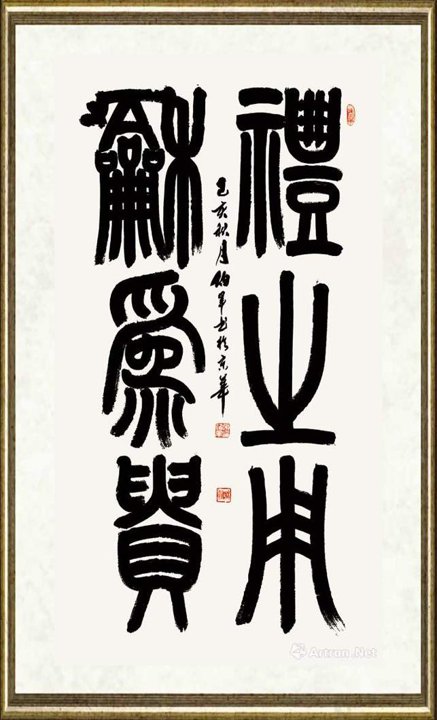 禮之用
龢為貴
己亥秋月伯平书於京華
Artron.Net